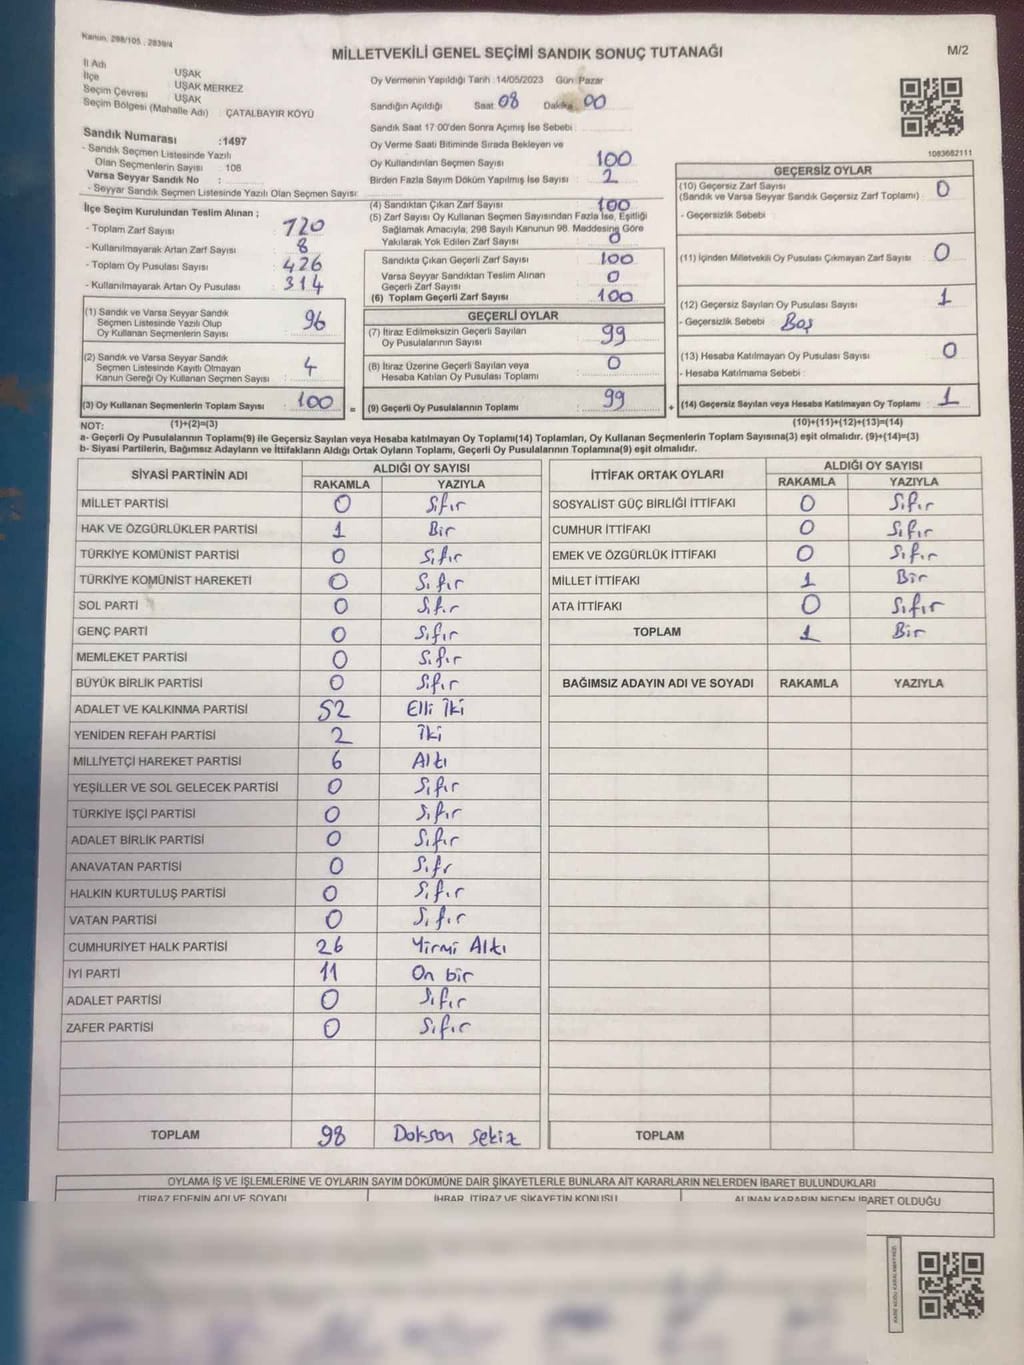 Kanun, 298/105 , 2839/4
MİLLETVEKİLİ GENEL SEÇİMİ SANDIK SONUÇ TUTANAĞI
M/2
İl Adı UŞAK
İlçe UŞAK MERKEZ
Seçim Çevresi UŞAK
Seçim Bölgesi (Mahalle Adı) ÇATALBAYIR KÖYÜ
Oy Vermenin Yapıldığı Tarih :14/05/2023 Gün: Pazar
Sandığın Açıldığı Saat 08 Dakika 00
Sandık Saat 17:00'den Sonra Açılmış İse Sebebi :
Oy Verme Saati Bitiminde Sırada Bekleyen ve
Oy Kullandırılan Seçmen Sayısı 100
Birden Fazla Sayım Döküm Yapılmış İse Sayısı 2
Sandık Numarası :1497
- Sandık Seçmen Listesinde Yazılı
Olan Seçmenlerin Sayısı : 108
Varsa Seyyar Sandık No :
- Seyyar Sandık Seçmen Listesinde Yazılı Olan Seçmen Sayısı:
İlçe Seçim Kurulundan Teslim Alınan ;
- Toplam Zarf Sayısı 120
- Kullanılmayarak Artan Zarf Sayısı 8
- Toplam Oy Pusulası Sayısı 426
- Kullanılmayarak Artan Oy Pusulası 314
(1) Sandık ve Varsa Seyyar Sandık
Seçmen Listesinde Yazılı Olup
Oy Kullanan Seçmenlerin Sayısı 96
(2) Sandık ve Varsa Seyyar Sandık
Seçmen Listesinde Kayıtlı Olmayan
Kanun Gereği Oy Kullanan Seçmen Sayısı 4
(3) Oy Kullanan Seçmenlerin Toplam Sayısı 100 =
(1)+(2)=(3)
(4) Sandıktan Çıkan Zarf Sayısı 100
(5) Zarf Sayısı Oy Kullanan Seçmen Sayısından Fazla İse, Eşitliği
Sağlamak Amacıyla, 298 Sayılı Kanunun 98. Maddesine Göre
Yakılarak Yok Edilen Zarf Sayısı 0
Sandıkta Çıkan Geçerli Zarf Sayısı 100
Varsa Seyyar Sandıktan Teslim Alınan
Geçerli Zarf Sayısı 0
(6) Toplam Geçerli Zarf Sayısı 100
GEÇERLİ OYLAR
(7) İtiraz Edilmeksizin Geçerli Sayılan
Oy Pusulalarının Sayısı 99
(8) İtiraz Üzerine Geçerli Sayılan veya
Hesaba Katılan Oy Pusulası Toplamı 0
(9) Geçerli Oy Pusulalarının Toplamı 99 +
1083682111
GEÇERSİZ OYLAR
(10) Geçersiz Zarf Sayısı 0
(Sandık ve Varsa Seyyar Sandık Geçersiz Zarf Toplamı) :
- Geçersizlik Sebebi :
(11) İçinden Milletvekili Oy Pusulası Çıkmayan Zarf Sayısı 0
(12) Geçersiz Sayılan Oy Pusulası Sayısı 1
- Geçersizlik Sebebi : Boş
(13) Hesaba Katılmayan Oy Pusulası Sayısı 0
- Hesaba Katılmama Sebebi :
(14) Geçersiz Sayılan veya Hesaba Katılmayan Oy Toplamı 1
(10)+(11)+(12)+(13)=(14)
NOT:
a- Geçerli Oy Pusulalarının Toplamı(9) ile Geçersiz Sayılan veya Hesaba katılmayan Oy Toplamı(14) Toplamları, Oy Kullanan Seçmenlerin Toplam Sayısına(3) eşit olmalıdır. (9)+(14)=(3)
b- Siyasi Partilerin, Bağımsız Adayların ve İttifakların Aldığı Ortak Oyların Toplamı, Geçerli Oy Pusulalarının Toplamına(9) eşit olmalıdır.
SİYASİ PARTİNİN ADI ALDIĞI OY SAYISI
RAKAMLA YAZIYLA
MİLLET PARTİSİ 0 Sıfır
HAK VE ÖZGÜRLÜKLER PARTİSİ 1 Bir
TÜRKİYE KOMÜNİST PARTİSİ 0 Sıfır
TÜRKİYE KOMÜNİST HAREKETİ 0 Sıfır
SOL PARTİ 0 Sıfır
GENÇ PARTİ 0 Sıfır
MEMLEKET PARTİSİ 0 Sıfır
BÜYÜK BİRLİK PARTİSİ 0 Sıfır
ADALET VE KALKINMA PARTİSİ 52 Elli İki
YENİDEN REFAH PARTİSİ 2 İki
MİLLİYETÇİ HAREKET PARTİSİ 6 Altı
YEŞİLLER VE SOL GELECEK PARTİSİ 0 Sıfır
TÜRKİYE İŞÇİ PARTİSİ 0 Sıfır
ADALET BİRLİK PARTİSİ 0 Sıfır
ANAVATAN PARTİSİ 0 Sıfr
HALKIN KURTULUŞ PARTİSİ 0 Sıfır
VATAN PARTİSİ 0 Sıfır
CUMHURİYET HALK PARTİSİ 26 Yirmi Altı
İYİ PARTİ 11 On bir
ADALET PARTİSİ 0 Sıfır
ZAFER PARTİSİ 0 Sıfır
TOPLAM 98 Doksan Sekiz
İTTİFAK ORTAK OYLARI ALDIĞI OY SAYISI
RAKAMLA YAZIYLA
SOSYALİST GÜÇ BİRLİĞİ İTTİFAKI 0 Sıfır
CUMHUR İTTİFAKI 0 Sıfır
EMEK VE ÖZGÜRLÜK İTTİFAKI 0 Sıfır
MİLLET İTTİFAKI 1 Bir
ATA İTTİFAKI 0 Sıfır
TOPLAM 1 Bir
BAĞIMSIZ ADAYIN ADI VE SOYADI RAKAMLA YAZIYLA
TOPLAM
OYLAMA İŞ VE İŞLEMLERİNE VE OYLARIN SAYIM DÖKÜMÜNE DAİR ŞİKAYETLERLE BUNLARA AİT KARARLARIN NELERDEN İBARET BULUNDUKLARI
İTİRAZ EDENİN ADI VE SOYADI İHBAR, İTİRAZ VE ŞİKAYETİN KONUSU ALINAN KARARIN NEDEN İBARET OLDUĞU